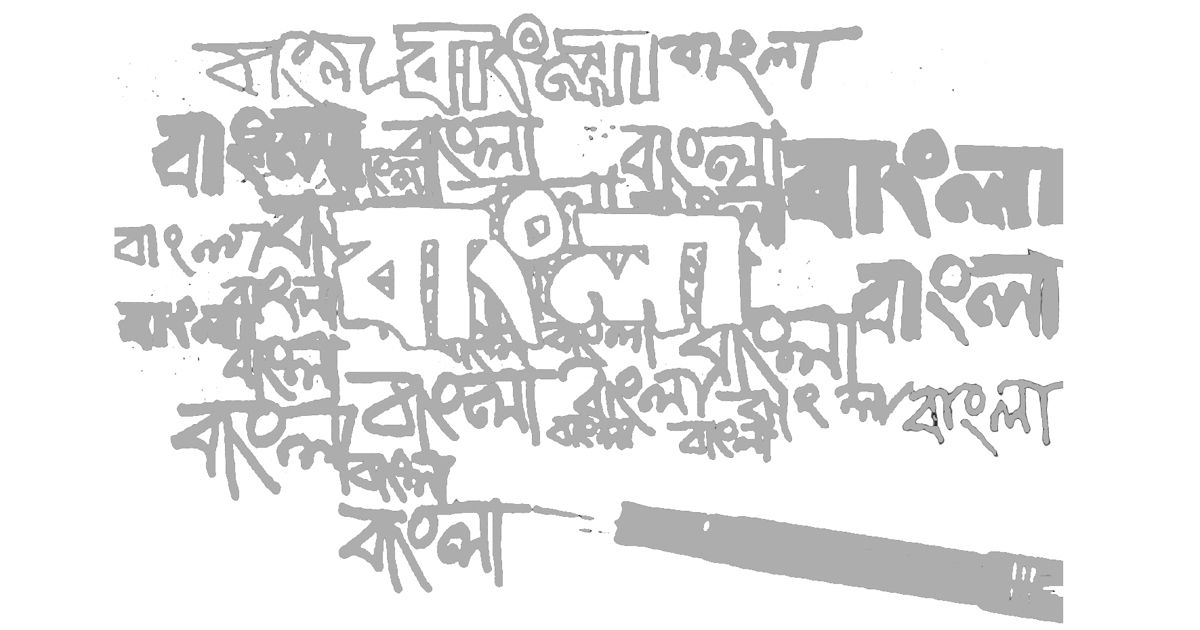 বাংলা বাংলা বাংলা
বাংলা বাংলা বাংলা বাংলা
বাংলা বাংলা
বাংলা বাংলা বাংলা
বাংলা বাংলা
বাংলা বাংলা বাংলা বাংলা
বাংলা বাংলা বাংলা বাংলা বাংলা
বাংলা বাংলা বাংলা
বাংলা
বাংলা